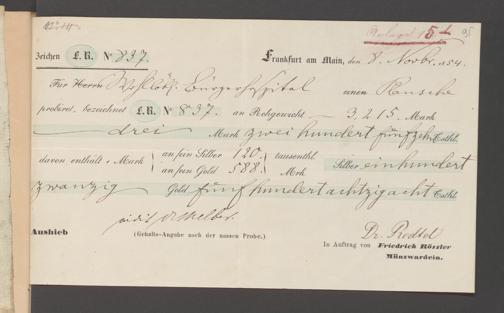 Beilage 15 95
Zeichen F.R. No 837. Frankfurt am Main, den 8. Novbr. 1854.
Für Herrn Wohllöbl. Bürgerhospital einen Plansche
probirt, bezeichnet F.R. No 837. an Rohgewicht — 3,215. Mark
drei Mark zwei hundert fünfzehn Tsthl.
davon enthält 1 Mark an fein Silber 120. tausenthl. Silber einhundert
an fein Gold 588. Mrk
zwanzig Gold fünfhundertachtzigacht Tsthl.
Aushieb (Gehalts-Angabe nach der nassen Probe.) Dr. Redtel
In Auftrag von Friedrich Rössler
Münzwardein.